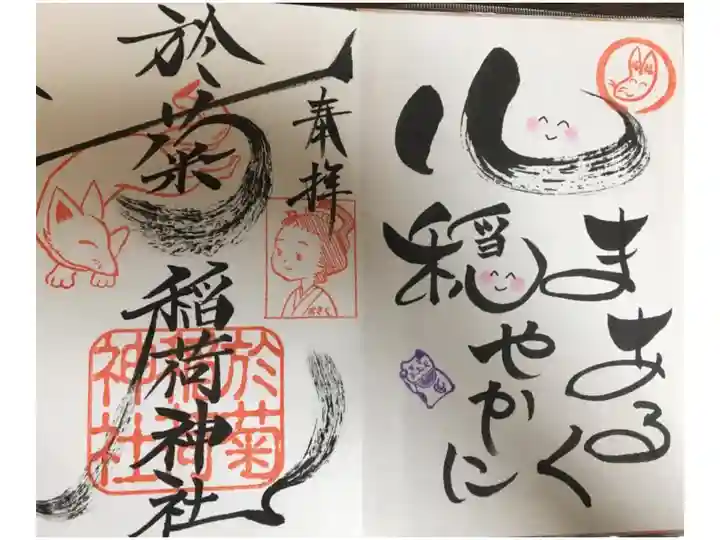 心
まあるく
穏やかに
奉拝
於菊稲荷神社
於菊
稲荷
神社
おきく